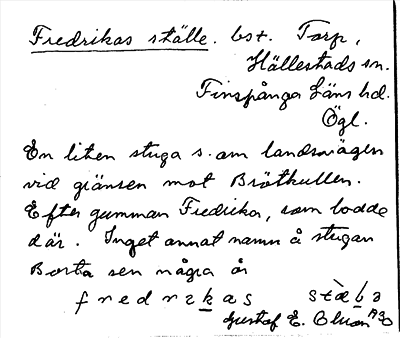 Fredrikas ställe. bst. Torp,
Hällestads sn.
Finspånga Läns hd.
Ögl.
En liten stuga s. om landsvägen
vid gränsen mot Brötkullen.
Efter gumman Fredrika, som bodde
där. Inget annat namn å stugan
Borta sen några år
Gustaf E. Olson 1930